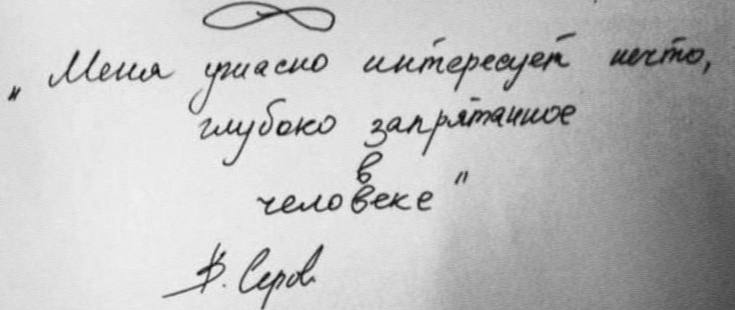 „Меня ужасно интересует нечто,
глубоко запрятанное
в
человеке"
В. Серов